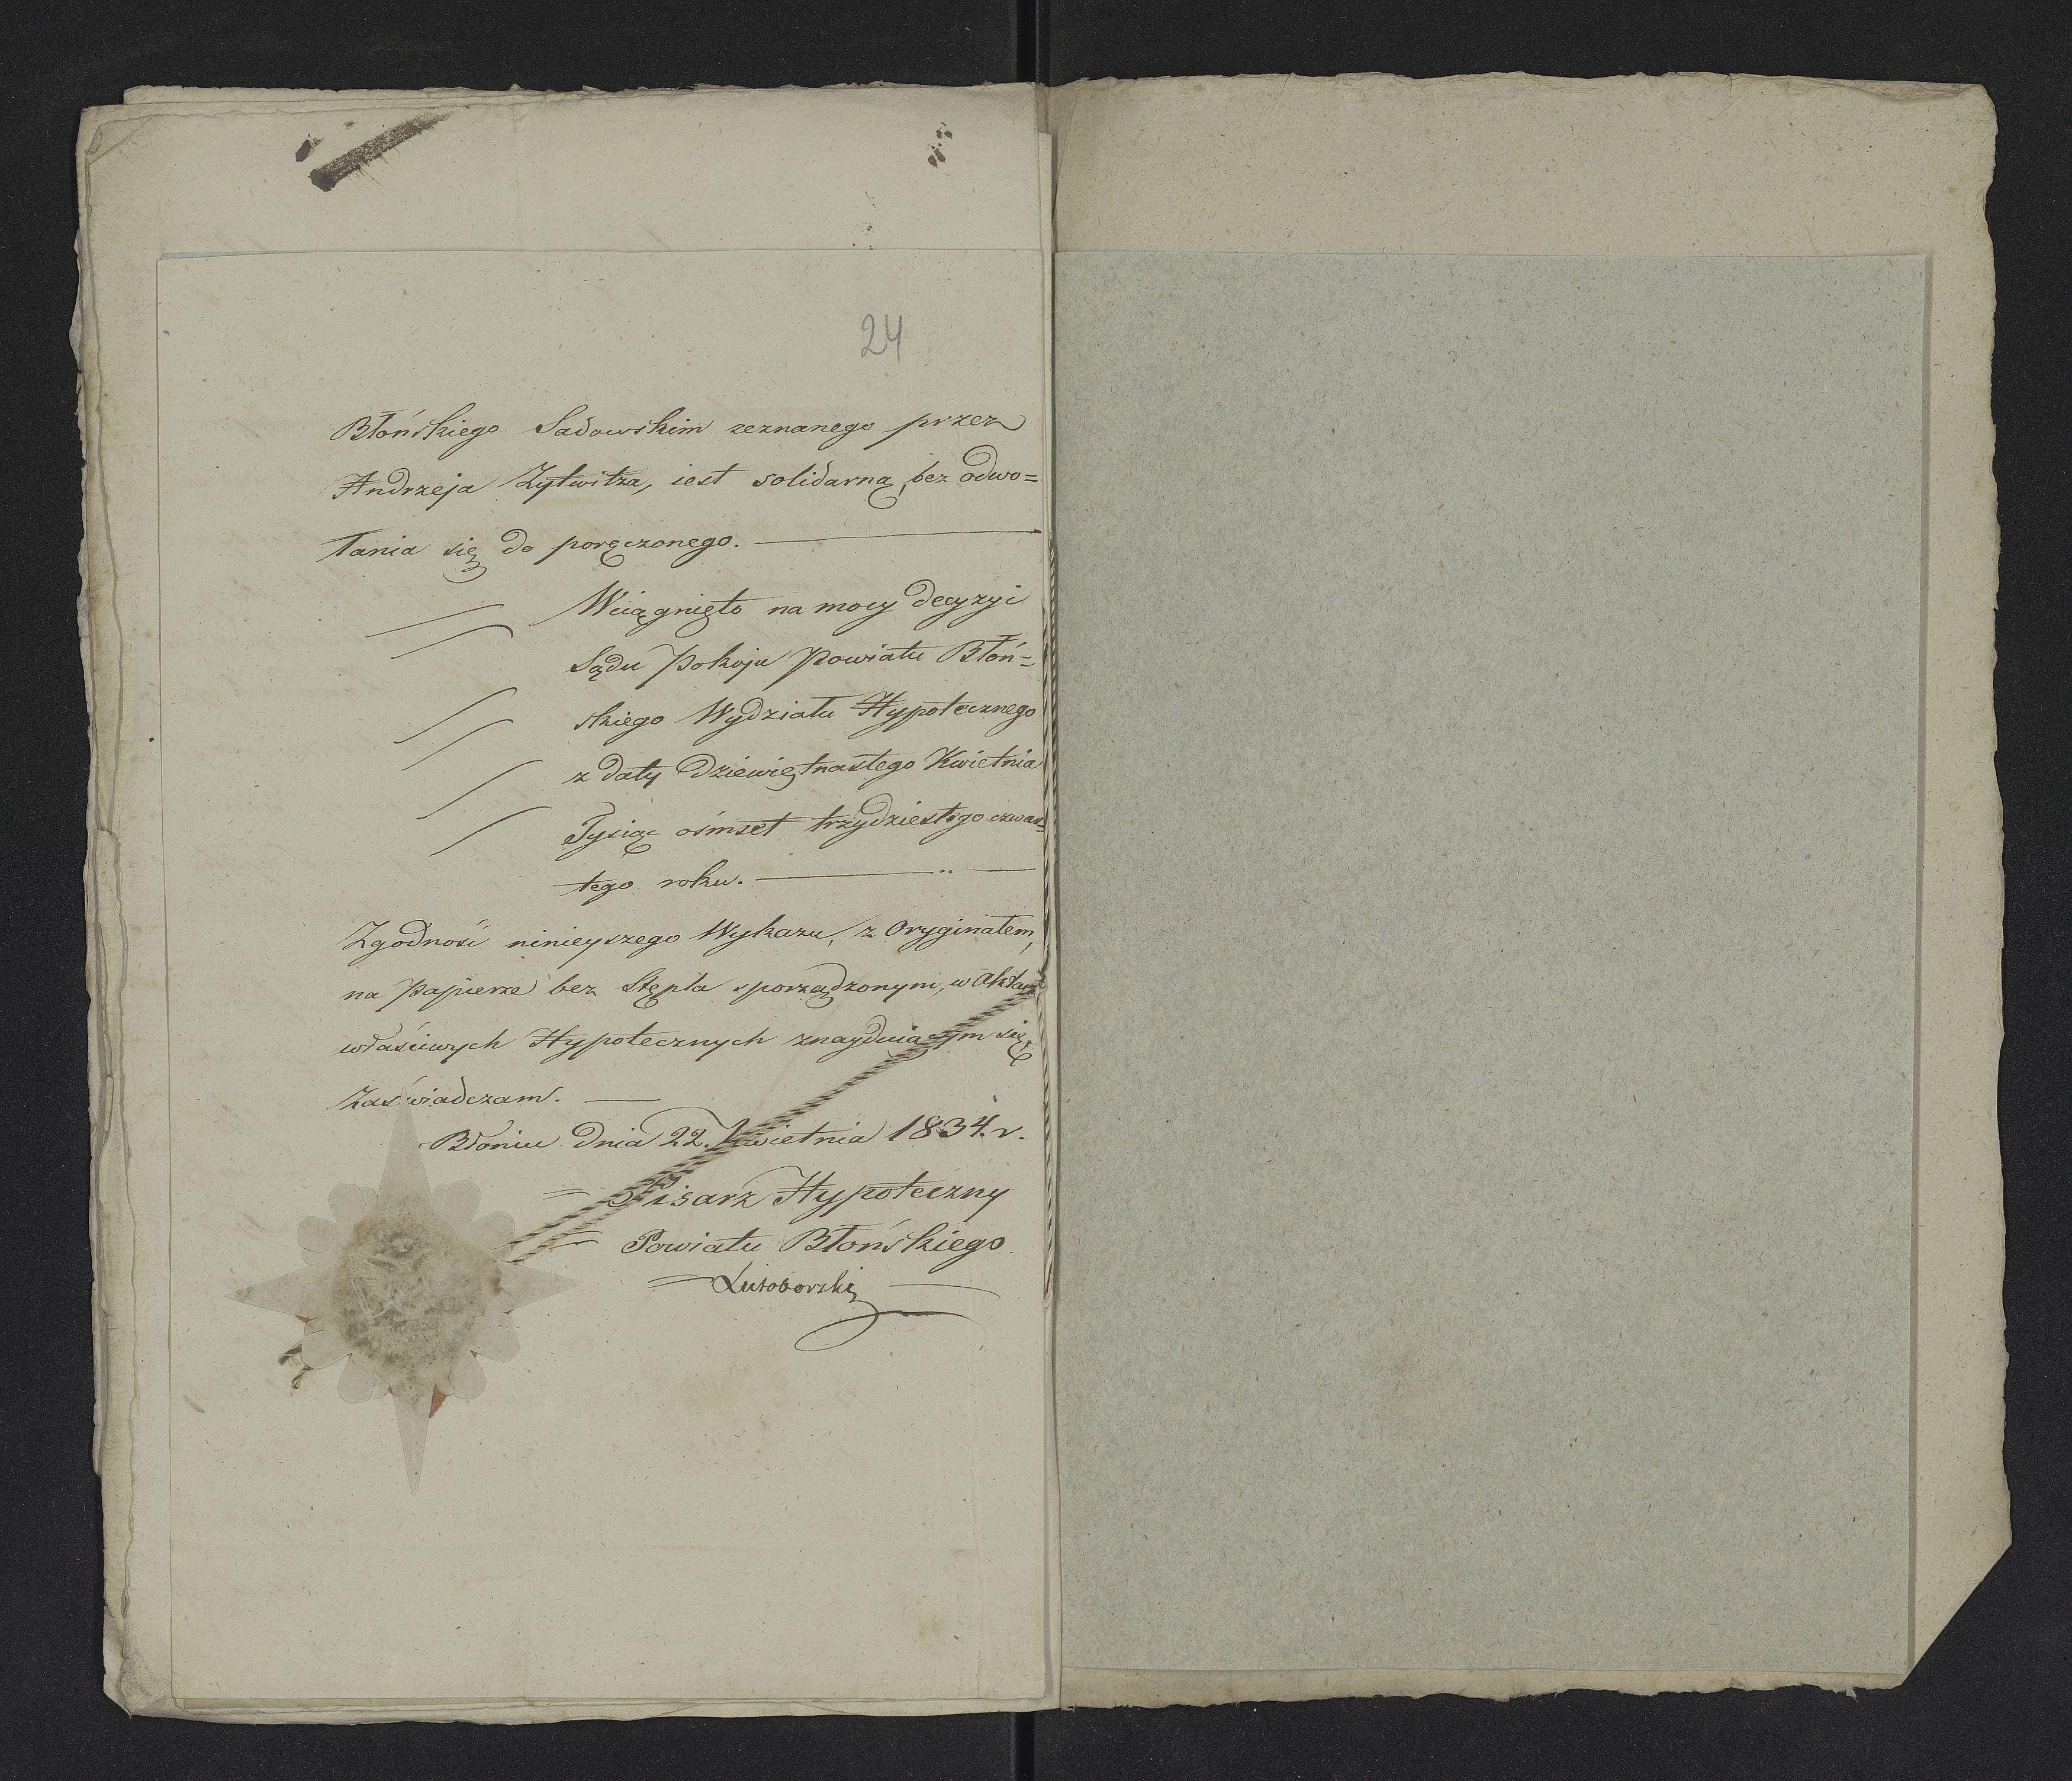 24
Błońskiego Sadowskim zeznanego przez
Andrzeja Zytwitza, iest solidarną, bez odwo=
łania się do poręczonego.
Wciągnięto na mocy decyzyi
Sądu Pokoju Powiatu Błoń=
skiego Wydziału Hypotecznego
z daty dziewiętnastego Kwietnia
Tysiąc ośmset trzydziestego czwar=
tego roku.
Zgodność ninieyszego Wykazu, z Oryginałem,
na Papierze bez Stępla sporządzonym, w Aktach
właściwych Hypotecznych znayduiącym się,
Zaświadczam.
Błoniu dnia 22. Kwietnia 1834. r.
Pisarz Hypoteczny
Powiatu Błońskiego.
Lutoborski